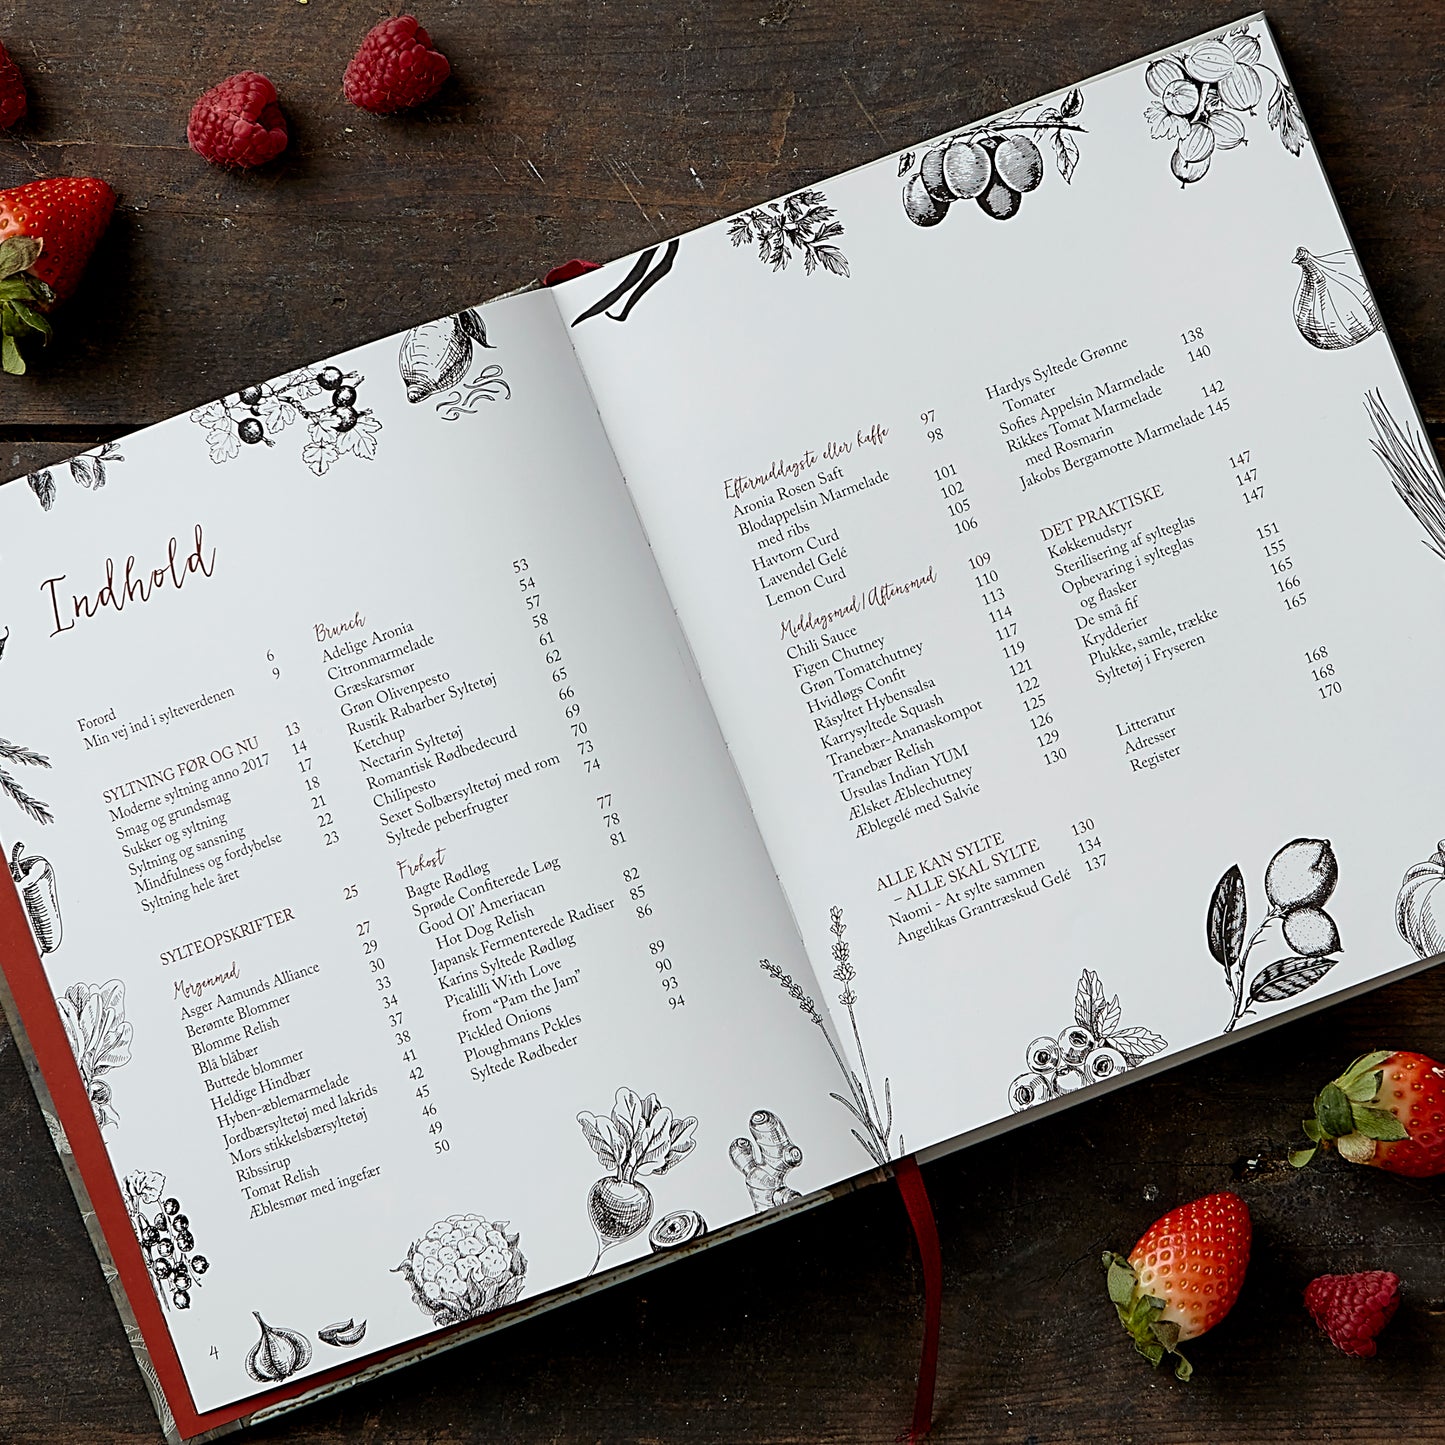 Indhold
Forord 6
Min vej ind i sylteverdenen 9
SYLTNING FØR OG NU 13
Moderne syltning anno 2017 14
Smag og grundsmag 17
Sukker og syltning 18
Syltning og sansning 21
Mindfulness og fordybelse 22
Syltning hele året 23
SYLTEOPSKRIFTER 25
Morgenmad 27
Asger Aamunds Alliance 29
Berømte Blommer 30
Blomme Relish 33
Blå blåbær 34
Buttede blommer 37
Heldige Hindbær 38
Hyben-æblemarmelade 41
Jordbærsyltetøj med lakrids 42
Mors stikkelsbærsyltetøj 45
Ribssirup 46
Tomat Relish 49
Æblesmør med ingefær 50
4
Brunch 53
Adelige Aronia 54
Citronmarmelade 57
Græskarsmør 58
Grøn Olivenpesto 61
Rustik Rabarber Syltetøj 62
Ketchup 65
Nectarin Syltetøj 66
Romantisk Rødbedecurd 69
Chilipesto 70
Sexet Solbærsyltetøj med rom 73
Syltede peberfrugter 74
Frokost 77
Bagte Rødløg 78
Sprøde Confiterede Løg 81
Good Ol' Ameriacan
Hot Dog Relish 82
Japansk Fermenterede Radiser 85
Karins Syltede Rødløg 86
Picalilli With Love
from "Pam the Jam" 89
Pickled Onions 90
Ploughmans Pckles 93
Syltede Rødbeder 94
Eftermiddagste eller kaffe 97
Aronia Rosen Saft 98
Blodappelsin Marmelade
med ribs 101
Havtorn Curd 102
Lavendel Gelé 105
Lemon Curd 106
Middagsmad/Aftensmad 109
Chili Sauce 110
Figen Chutney 113
Grøn Tomatchutney 114
Hvidløgs Confit 117
Råsyltet Hybensalsa 119
Karrysyltede Squash 121
Tranebær-Ananaskompot 122
Tranebær Relish 125
Ursulas Indian YUM 126
Ælsket Æblechutney 129
Æblegelé med Salvie 130
ALLE KAN SYLTE
– ALLE SKAL SYLTE 130
Naomi - At sylte sammen 134
Angelikas Grantræskud Gelé 137
Hardys Syltede Grønne
Tomater 138
Sofies Appelsin Marmelade 140
Rikkes Tomat Marmelade
med Rosmarin 142
Jakobs Bergamotte Marmelade 145
DET PRAKTISKE 147
Køkkenudstyr 147
Sterilisering af sylteglas 147
Opbevaring i sylteglas
og flasker 151
De små fif 155
Krydderier 165
Plukke, samle, trække 166
Syltetøj i Fryseren 165
Litteratur 168
Adresser 168
Register 170